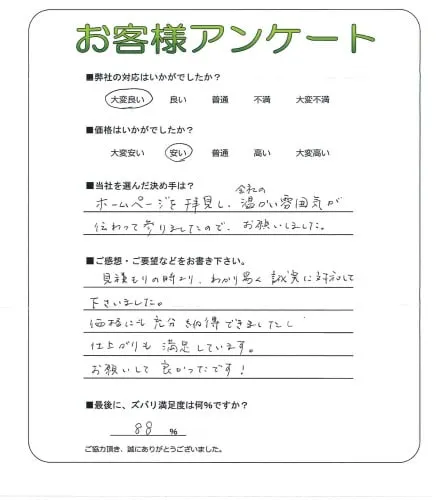 お客様アンケート
■弊社の対応はいかがでしたか？
大変良い 良い 普通 不満 大変不満
■価格はいかがでしたか？
大変安い 安い 普通 高い 大変高い
■当社を選んだ決め手は？
会社の
ホームページを拝見し、温かい雰囲気が
伝わって参りましたので、お願いしました。
■ご感想・ご要望などをお書き下さい。
見積もりの時より、わかり易く誠実に対応して
下さいました。
価格にも充分納得できましたし
仕上がりも満足しています。
お願いして良かったです！
■最後に、ズバリ満足度は何%ですか？
88 %
ご協力頂き、誠にありがとうございました。